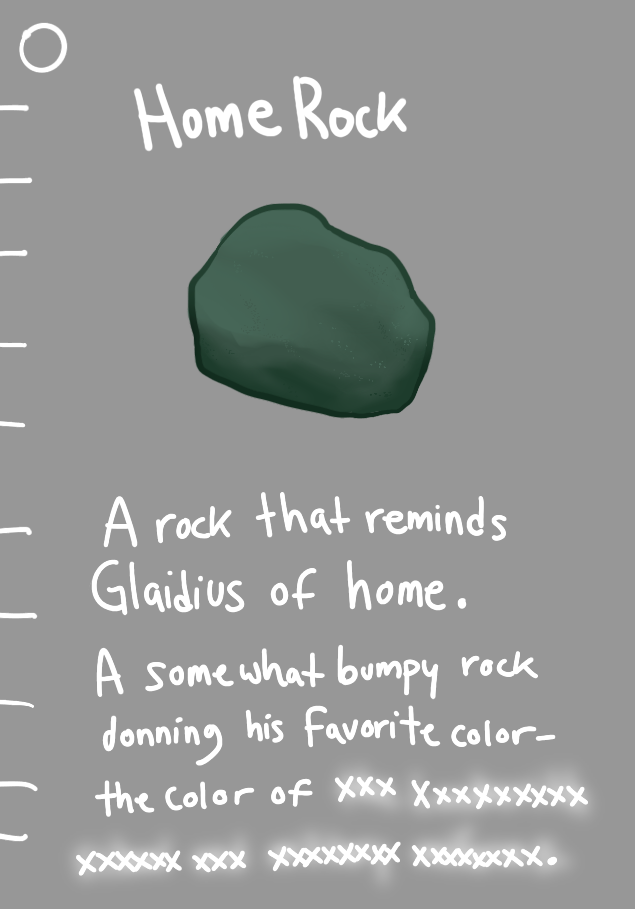 Home Rock
A rock that reminds
Glaidius of home.
A somewhat bumpy rock
donning his favorite color-
the color of xxx Xxxxxxxxx
xxxxxx xxx xxxxxxxx xxxxxxx.